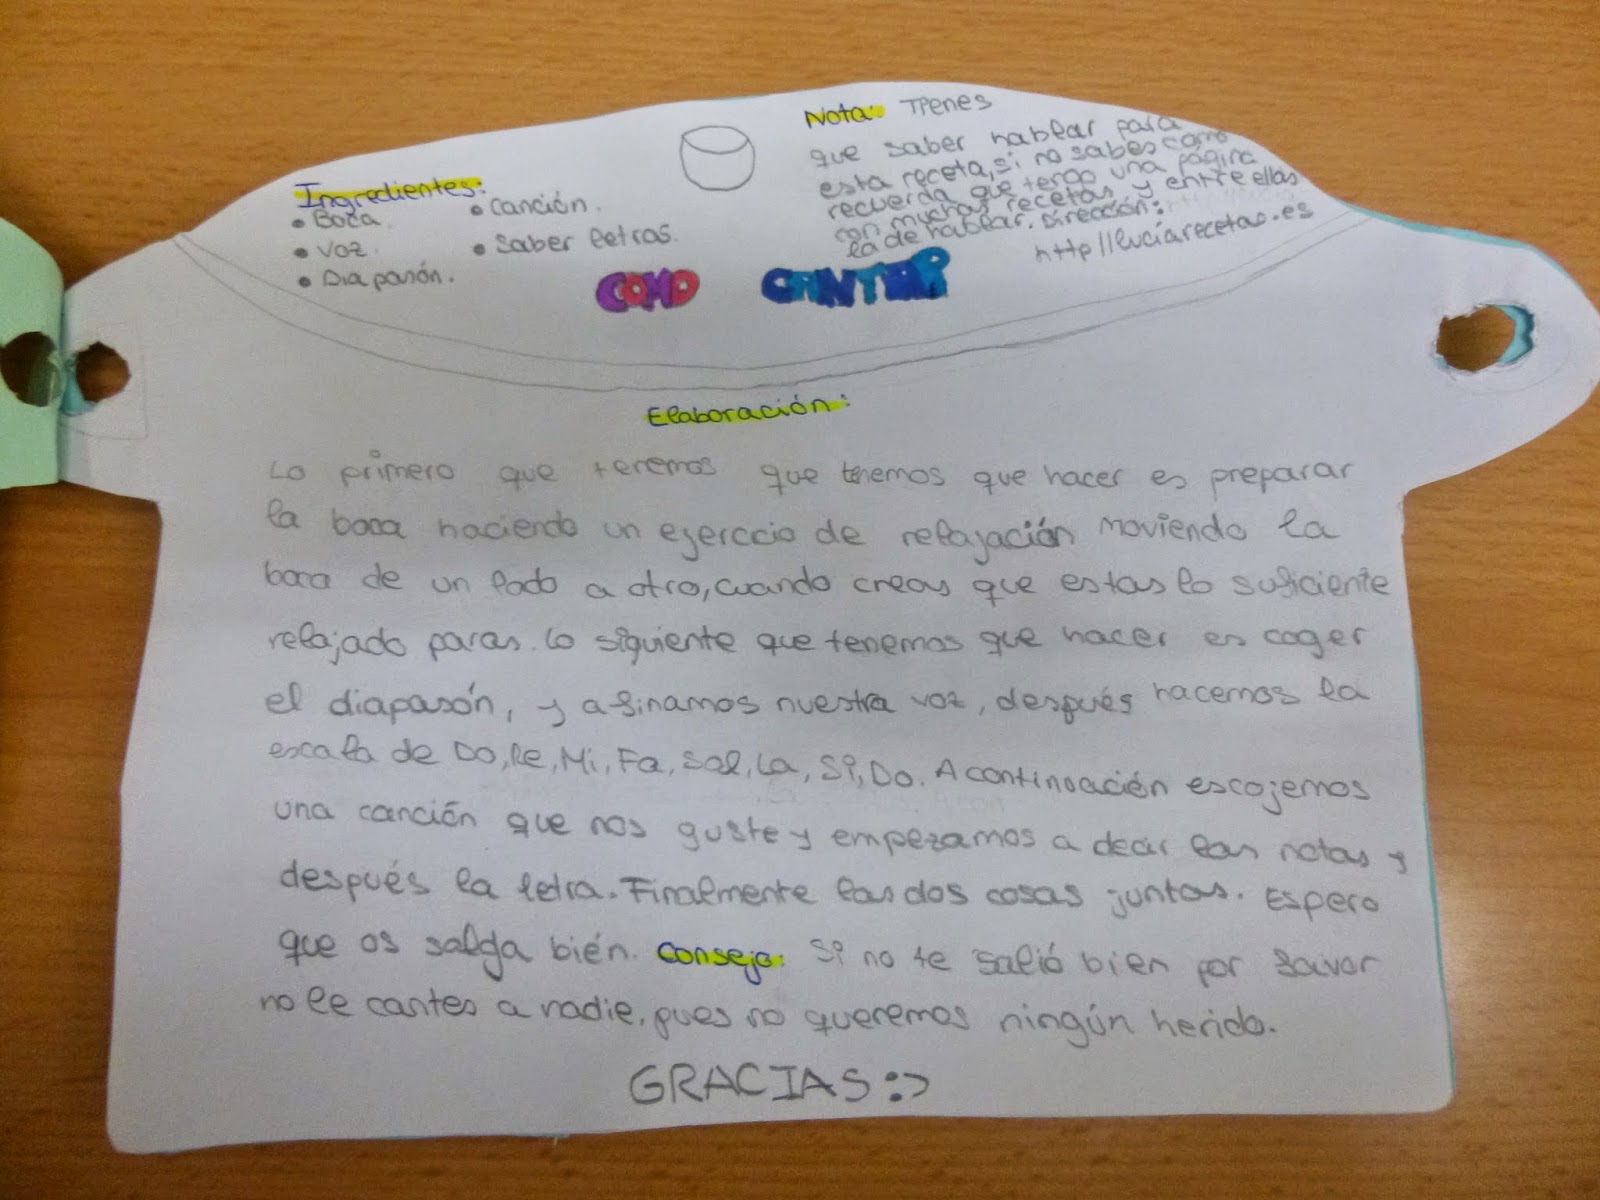 Ingredientes:
• Boca.
• Voz.
• Diapasón.
• Canción.
• Saber letras.
Nota: Tienes
que saber hablar para
esta receta, si no sabes como
recuerda que tengo una página
con muchas recetas, y entre ellas
la de hablar. Dirección:
http//lucíarecetas.es
COMO CANTAR
Elaboración:
Lo primero que tenemos que tenemos que hacer es preparar
la boca haciendo un ejerccio de relajación moviendo la
boca de un lado a otro, cuando creas que estas lo suficiente
relajado paras. Lo siguiente que tenemos que hacer es coger
el diapasón, y afinamos nuestra voz, después hacemos la
escala de Do, Re, Mi, Fa, Sol, La, Si, Do. A continuación escojemos
una canción que nos guste y empezamos a decir las notas y
después la letra. Finalmente las dos cosas juntas. Espero
que os salga bién. Consejo: Si no te salió bien por favor
no le cantes a nadie, pues no queremos ningún herido.
GRACIAS :>